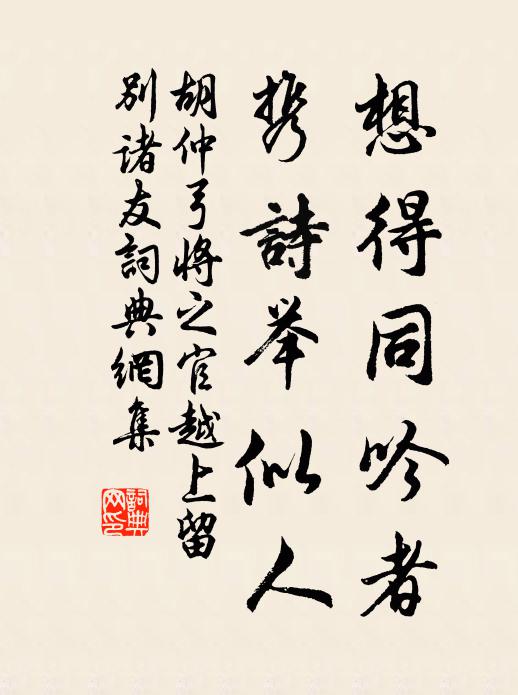 想得同吟者
携詩举似人
胡仲弓將之官越上留
別诸友詞典網集
詞典
网印